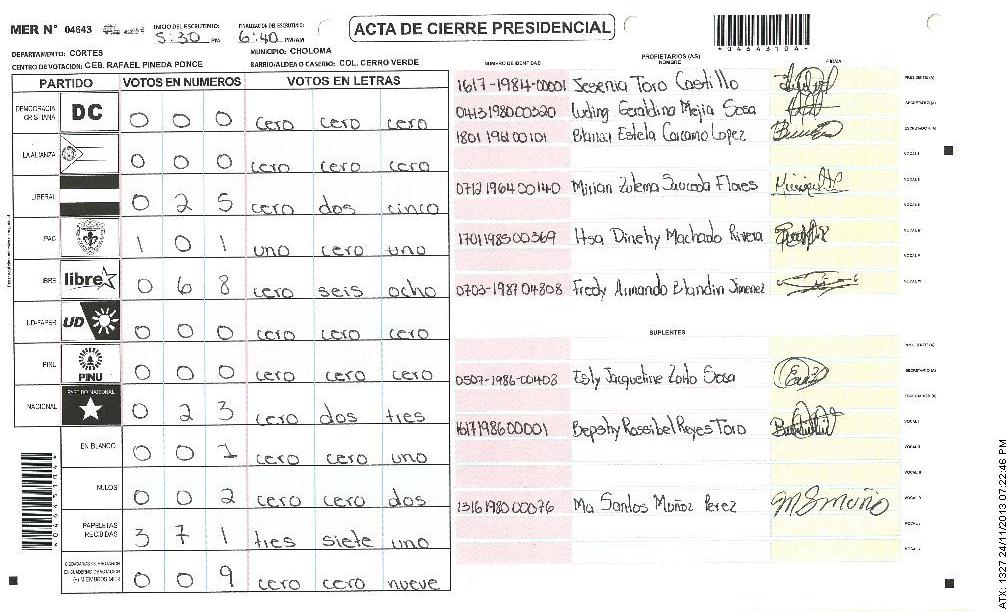 MER N° 04643
INICIO DEL ESCRUTINIO: 5:30 PM
FINALIZACION DEL ESCRUTINIO: 6:40 PM/AM
ACTA DE CIERRE PRESIDENCIAL
*04643104*
DEPARTAMENTO: CORTES
MUNICIPIO: CHOLOMA
CENTRO DE VOTACION: CEB. RAFAEL PINEDA PONCE
BARRIO/ALDEA O CASERIO: COL. CERRO VERDE
PARTIDO VOTOS EN NUMEROS VOTOS EN LETRAS
DEMOCRACIA CRISTIANA DC 0 0 0 cero cero cero
LA ALIANZA 0 0 0 cero cero cero
LIBERAL 0 2 5 cero dos cinco
PAC 1 0 1 uno cero uno
LIBRE libre 0 6 8 cero seis ocho
UD-FAPER UD 0 0 0 cero cero cero
PINU PINU 0 0 0 cero cero cero
NACIONAL PARTIDO NACIONAL 0 2 3 cero dos tres
EN BLANCO 0 0 1 cero cero uno
NULOS 0 0 2 cero cero dos
PAPELETAS RECIBIDAS 3 7 1 tres siete uno
0 0 9 cero cero nueve
NUMERO DE IDENTIDAD PROPIETARIOS (AS) NOMBRE FIRMA
1617-1984-00001 Toro Castillo PRESIDENTE(A)
0413198000320 Luding Geraldina Mejia Sosa SECRETARIO(A)
1801 1961 00101 Blanca Estela Carcamo Lopez ESCRUTADOR(A)
0712 1964 00140 Mirian Zulema Flores
1701198500369 Dinehy Machado Rivera
0703-1987 04808 Fredy Armando Blandin Jimenez
SUPLENTES
PRESIDENTE(A)
0507-1986-00403 Esly Jaqueline Sosa SECRETARIO(A)
1617198600001 Bepshy Rossibel Reyes Toro
1316198000076 Ma Santos Muñoz Perez
ATX: 1327 24/11/2013 07:22:46 PM